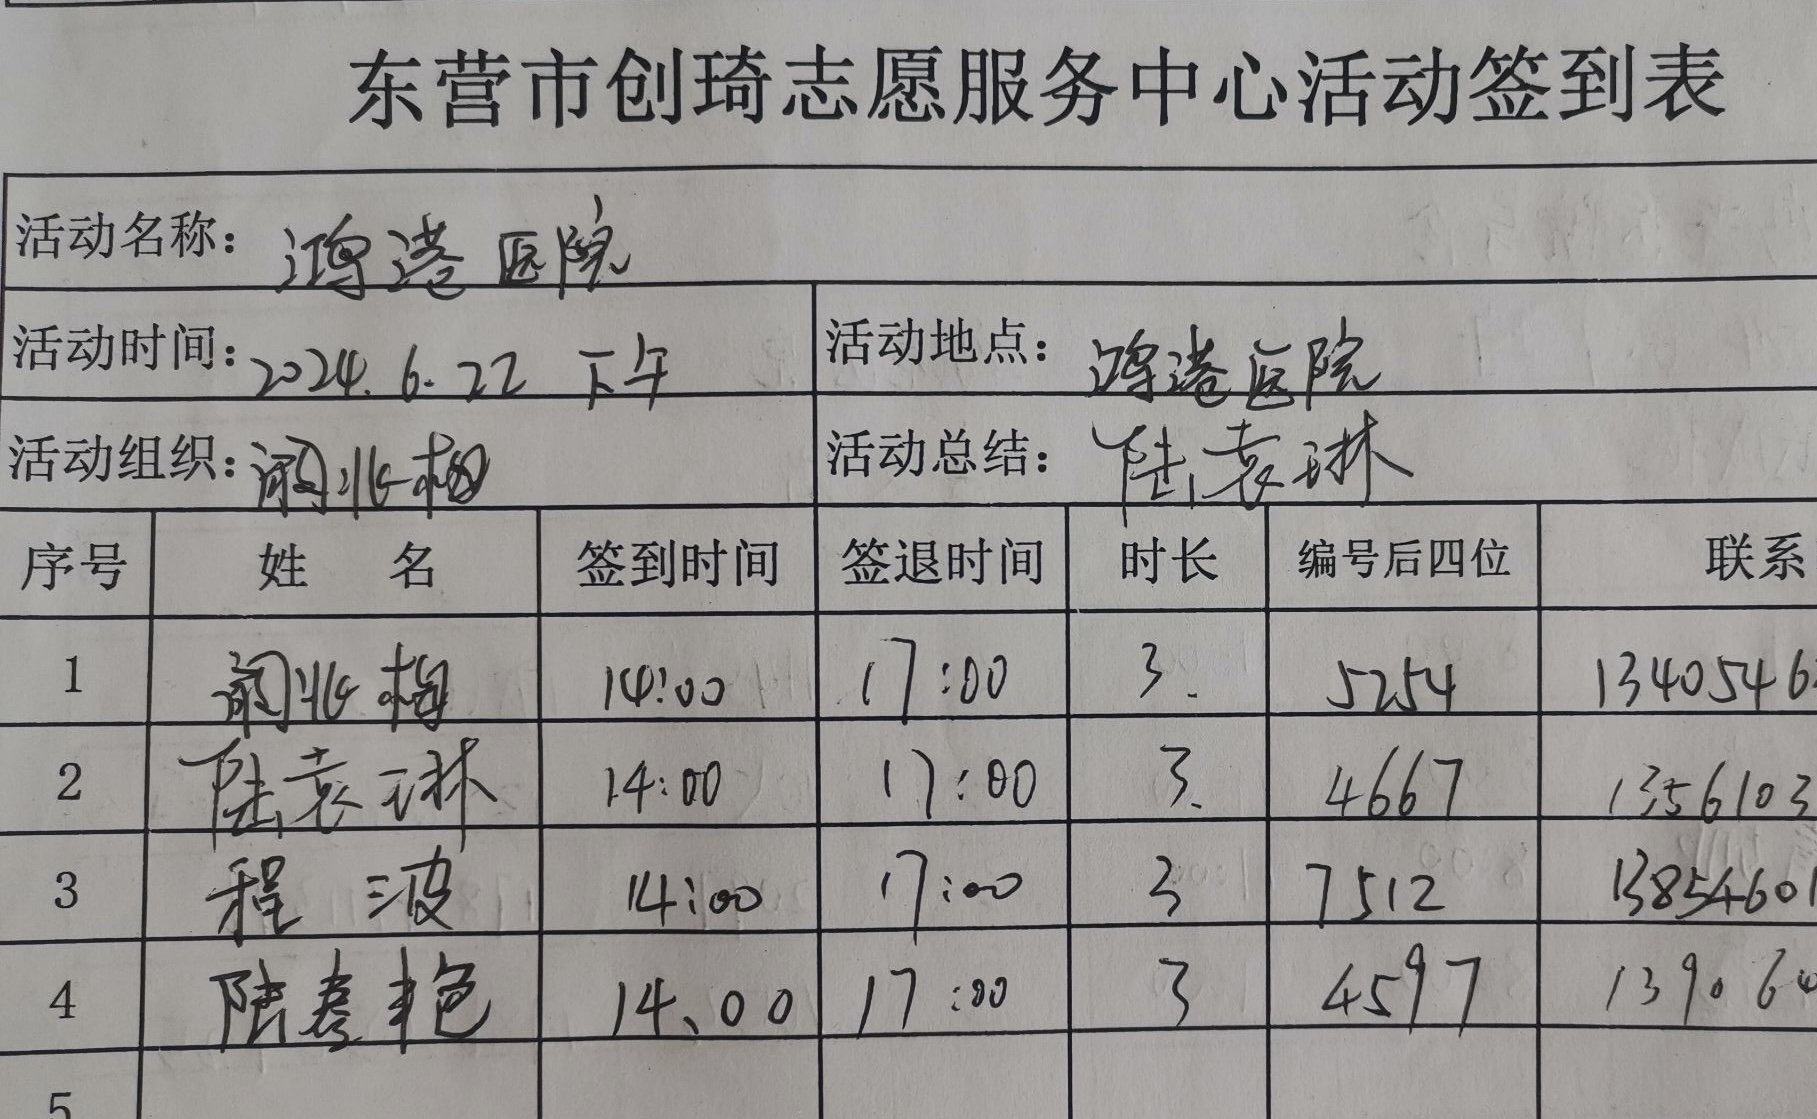 东营市创琦志愿服务中心活动签到表
活动名称: 鸿港医院
活动时间: 2024.6.22 下午 活动地点: 鸿港医院
活动组织: 梅 活动总结: 陆袁琳
序号 姓 名 签到时间 签退时间 时长 编号后四位 联系
1 梅 14:00 17:00 3. 5254 1340546
2 陆袁琳 14:00 17:00 3. 4667 1356103
3 程波 14:00 17:00 3 7512 13854601
4 陆春艳 14、00 17:00 3 4597 139064
5